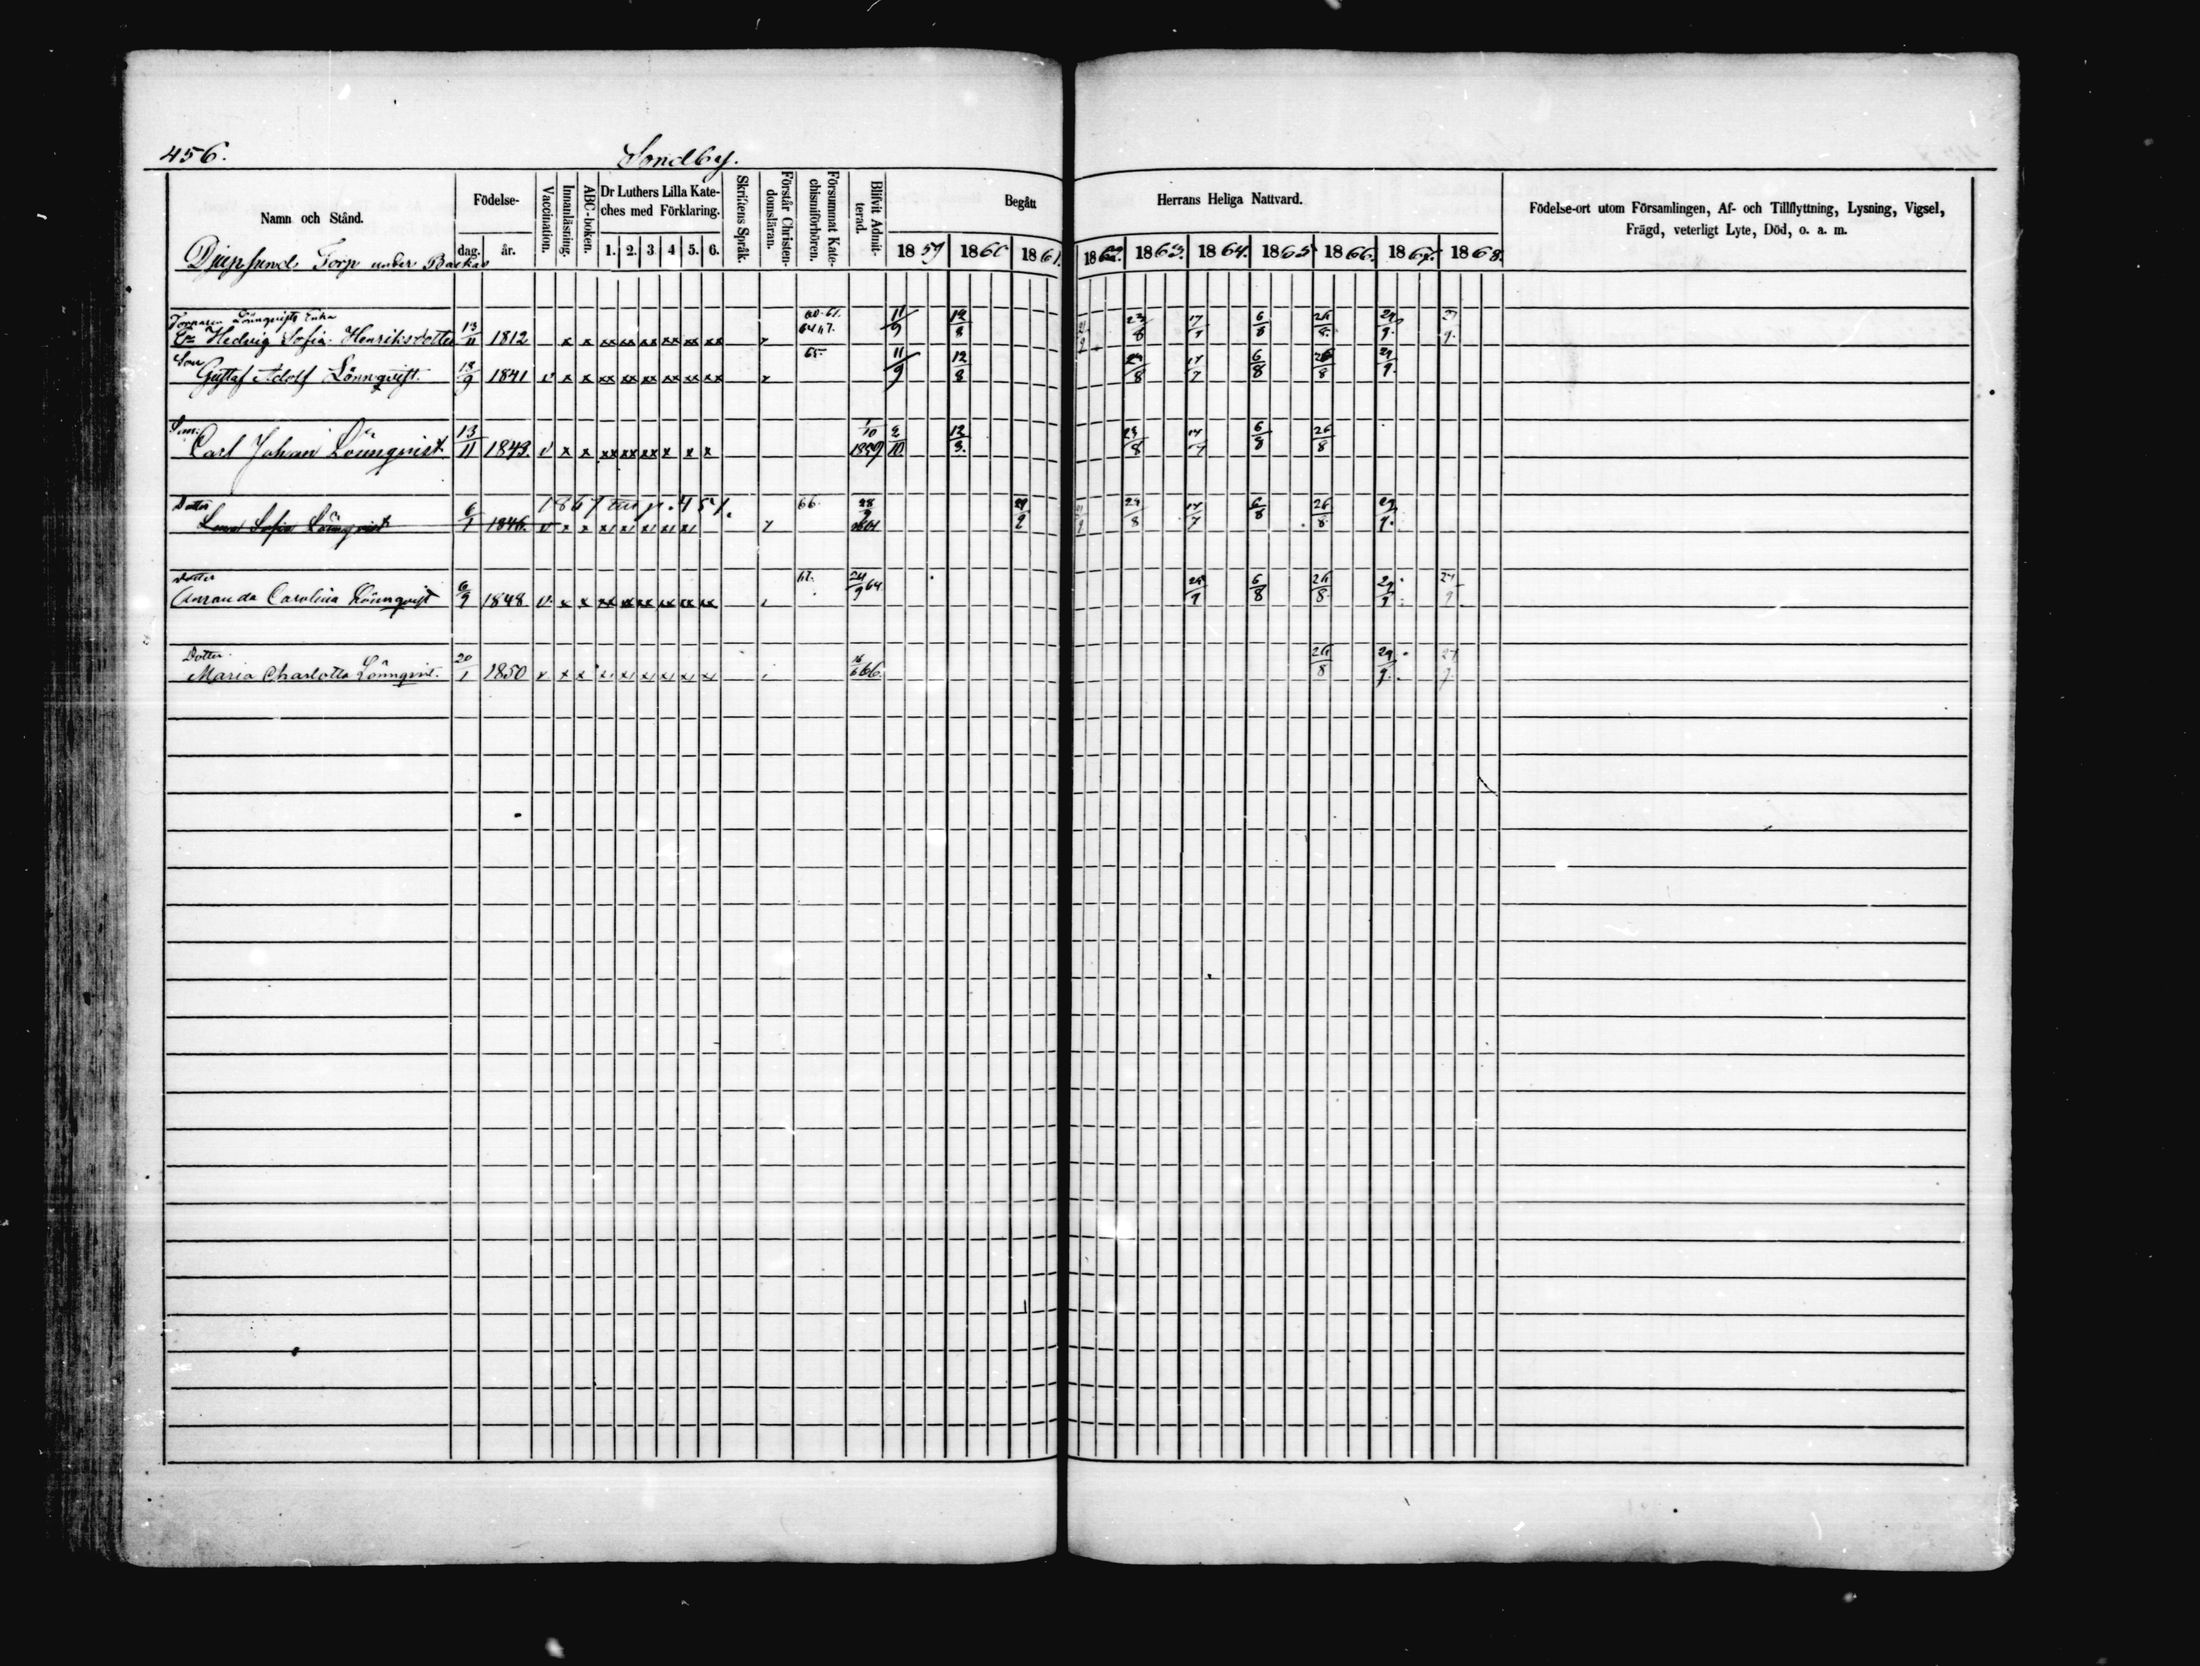 456.
Sondby.
Namn och Stånd.
Födelse-
dag.
år.
Vaccination.
Innanläsning.
ABC-boken.
Dr Luthers Lilla Kate-
ches med Förklaring.
1. 2. 3 4 5. 6.
Skriftens Språk.
Förstår Christen-
domsläran.
Försummat Kate-
chismiförhören.
Blifvit Admit-
terad.
Begått
Herrans Heliga Nattvard.
1859 1860 1861. 1862. 1863. 1864. 1865 1866. 1867. 1868.
Födelse-ort utom Församlingen, Af- och Tillflyttning, Lysning, Vigsel,
Frägd, veterligt Lyte, Död, o. a. m.
Djupsunds Torp under Backas
Torparen Lönnqvists Enka
Hedvig Sofia Henriksdotter 13/11 1812 x x xx xx xx xx xx xx 60. 61. 64 67. 11/9 12/8 23/8 17/7 6/8 26/8 29/9. 27/9.
Son
Gustaf Adolf Lönnqvist. 13/9 1841 v x x xx xx xx xx xx xx 65. 11/9 12/8 24/8 17/7 6/8 26/8 29/9.
Son.
Carl Johan Lönnqvist 13/11 1843. v x x xx xx xx x x x 1/10 1859 2/10 12/8. 23/8 17/7 6/8 26/8
Dotter 1867 till p. 451.
Lena Sofia Lönnqvist 6/1 1846. v x x 66. 24/8 17/7 6/8 26/8 29/9.
Dotter
Amanda Carolina Lönnqvist 6/9 1848 v x x xx xx xx xx xx xx 67. 24/9 64 6/8 26/8 29/9 27/9
Dotter
Maria Charlotta Lönnqvist. 20/1 1850 v x x 66. 26/8 29/9. 27/9.